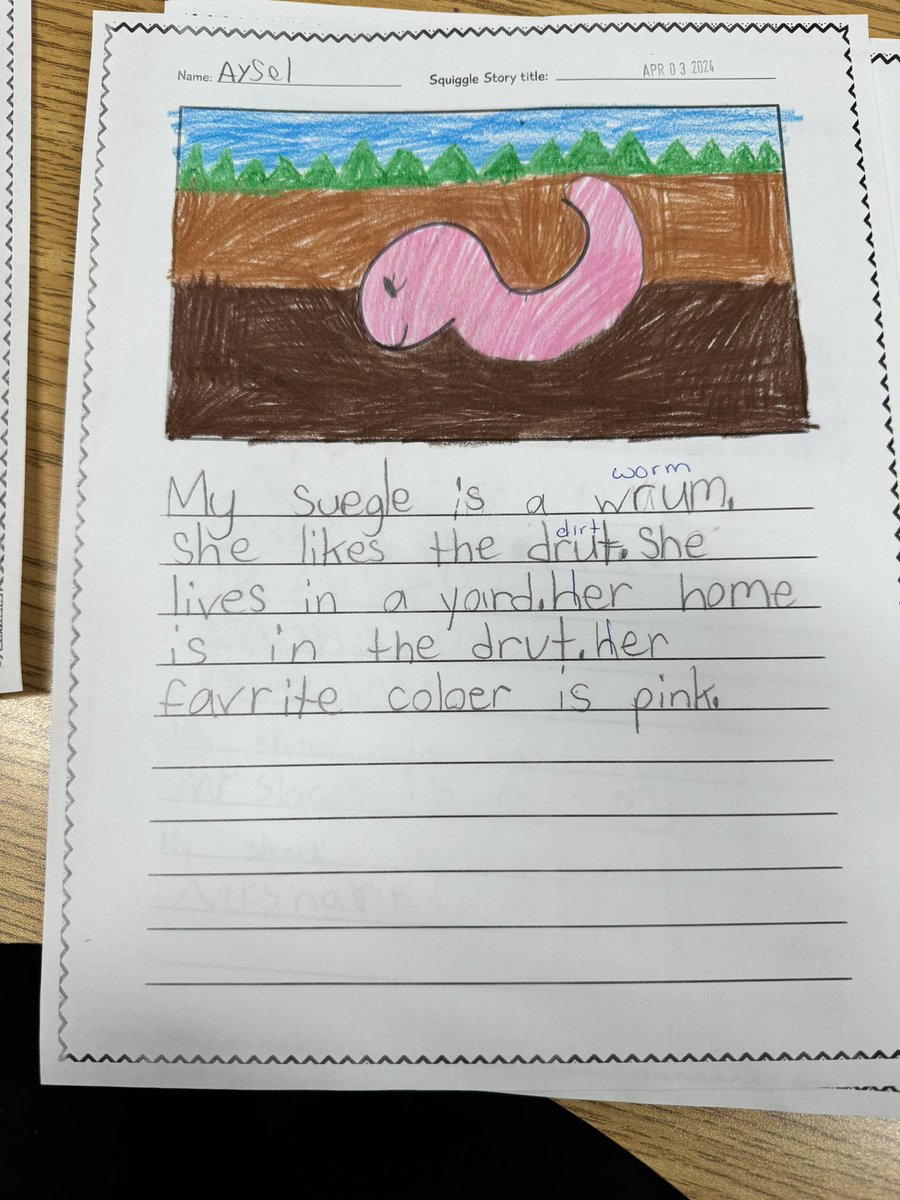 Name: Aysel Squiggle Story title: APR 03 2024
worm
My suegle is a wrium.
dirt
She likes the drut. She
lives in a yard. Her home
is in the drut. Her
favrite coloer is pink.